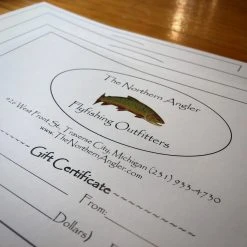 The Northern Angler
Flyfishing Outfitters
West Front St, Traverse City, Michigan (231) 933-4730
www.TheNorthernAngler.com
Gift Certificate
From:
Dollars)